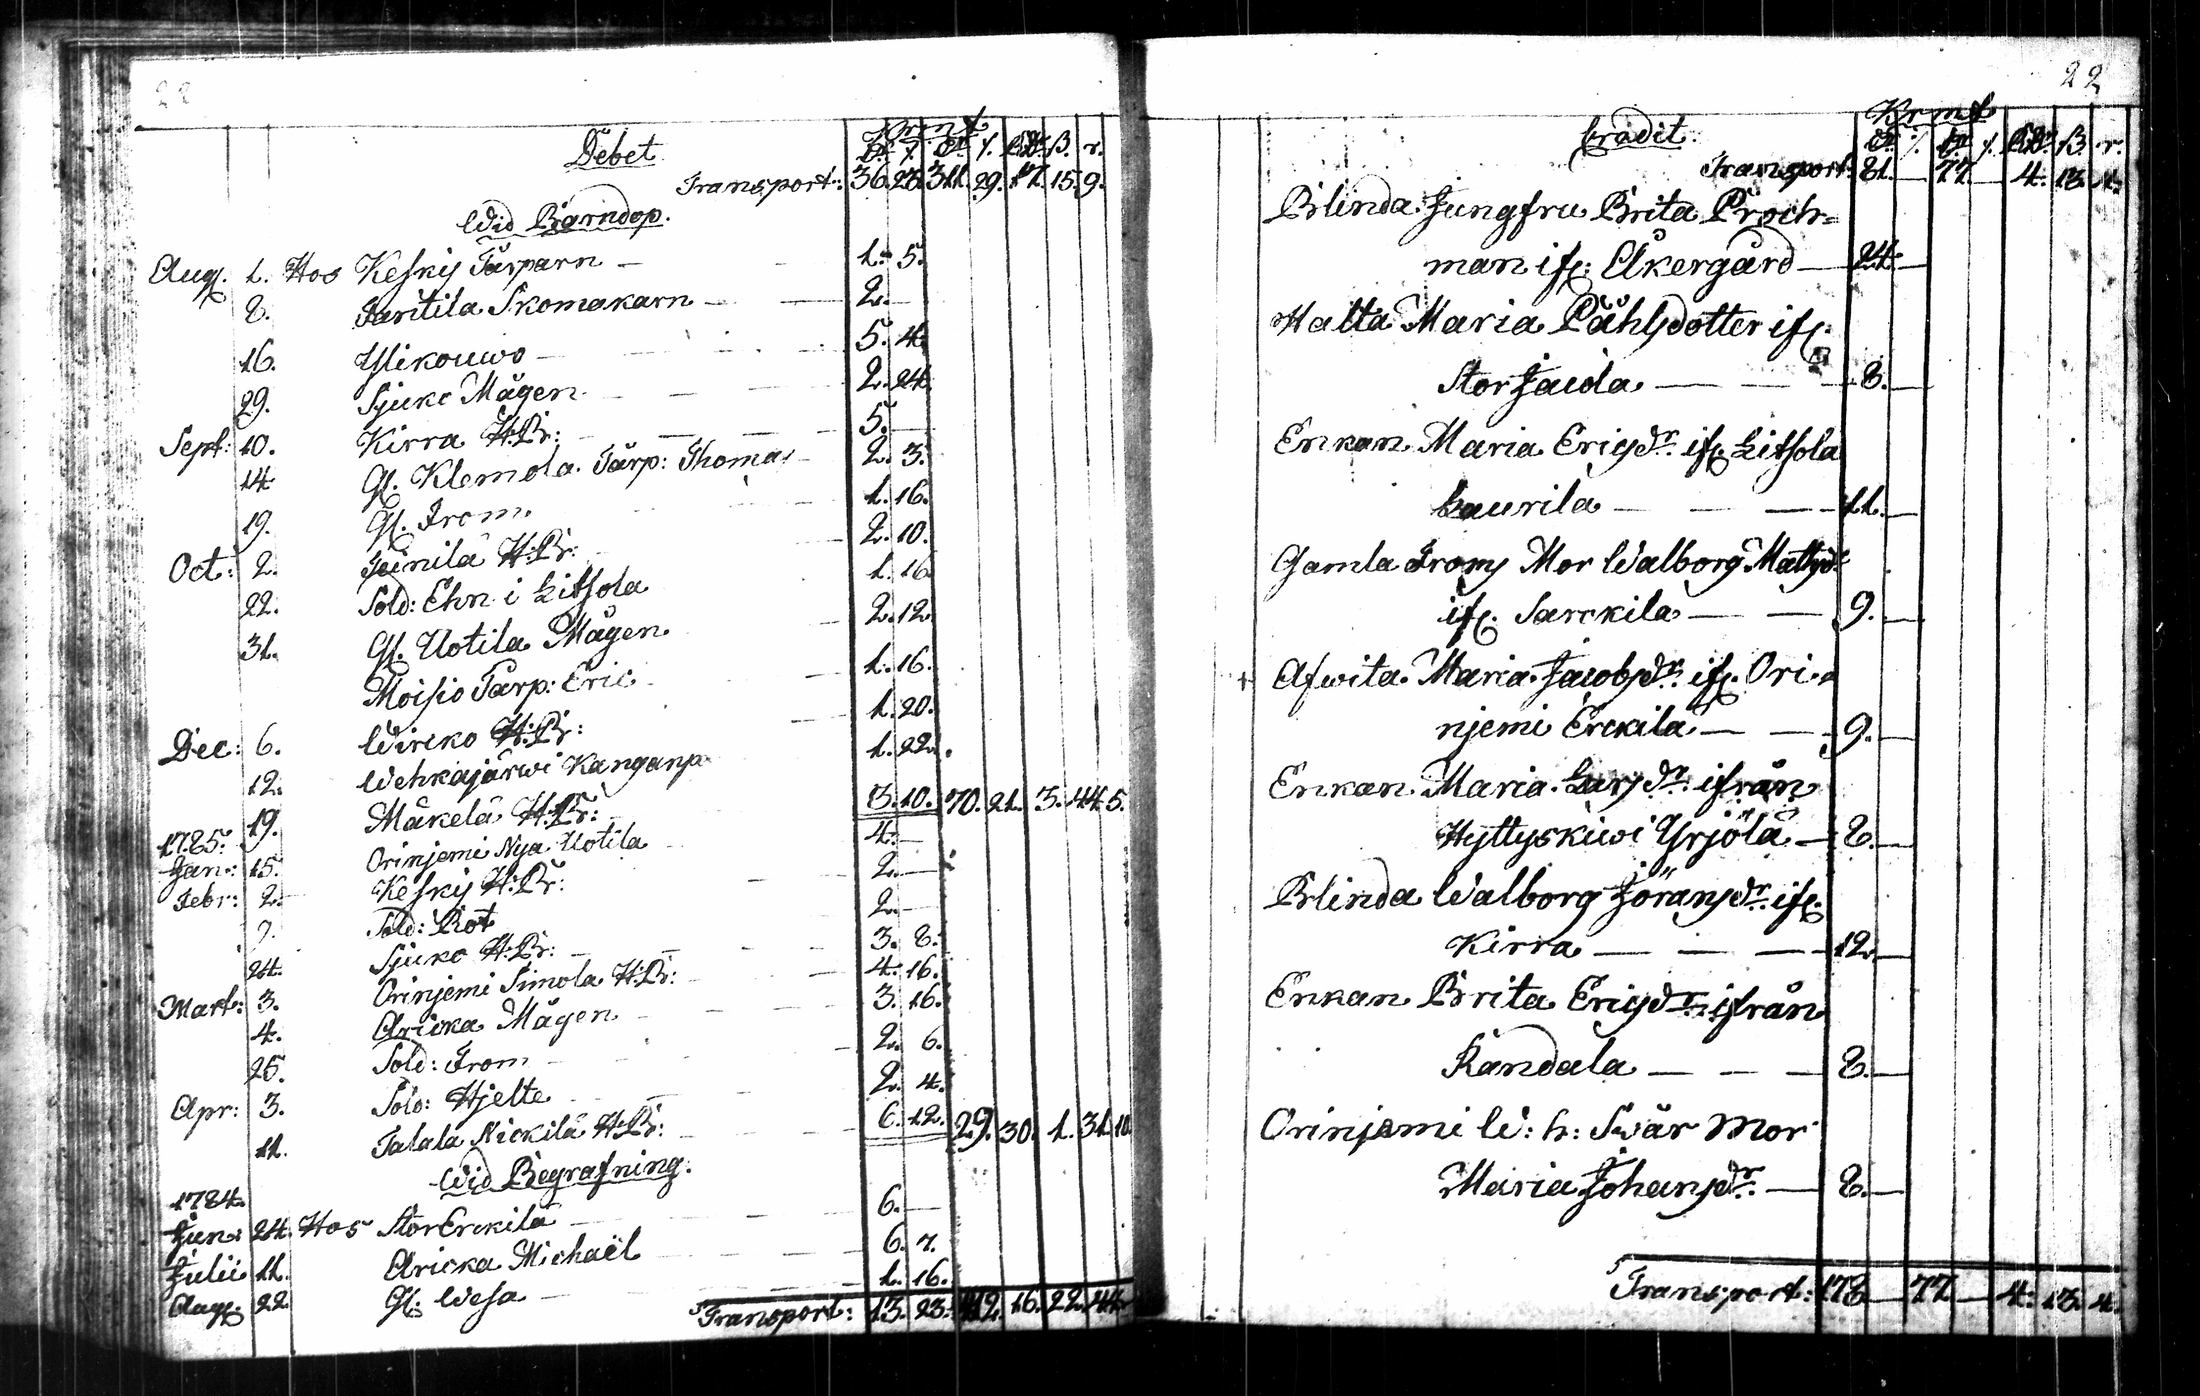 22
Debet
Krmt
Dr. /. Dr. /. Rdr. ß. r.
Transport: 36. 23. 311. 29. 17. 15. 9.
Wid Barndop.
Aug. 1. Hos Keskis Tårparn — 1. 5.
8. Jantila Skomakarn — 2. —
16. Ylikouwo — 5. 4.
29. Sjuko Mågen — 2. 24.
Sept: 10. Kirra H:Br: — 5. —
14. Gl. Klemola Tårp: Thomas — 2. 3.
19. Gl. From. 1. 16.
Oct: 2. Junila H:Br: 2. 10.
22. Sold: Ehn i Litsola 1. 16.
31. Gl. Uotila Mågen 2. 12.
Moisio Tårp: Eric 1. 16.
Dec: 6. Wircko H:Br: 1. 20.
12. Wehkajärwi Kanganp 1. 22.
19. Mäkelä H:Br: 3. 10. 70. 21. 3. 44. 5.
1785.
Jan: 15. Orinjemi Nya Uotila 4. —
Febr: 2. Keskis H:Br: 2. —
7. Sold: Rot 2. —
24. Sjuko H:Br: — 3. 8.
Mart: 3. Orinjemi Simola H:Br: 4. 16.
4. Aricka Mågen — 3. 16.
25. Sold: From — 2. 6.
Apr: 3. Sold: Hjelte 2. 4.
11. Talala Nickilä H:Br: 6. 12. 29. 30. 1. 31. 10.
Wid Begrafning.
1784.
Jun: 24. Hos StorErckilä — 6. —
Julii 11. Aricka Michaël 6. 7.
Aug. 22 Gl. Wesa — 1. 16.
Transport: 13. 23. 412. 16. 22. 44.
22
Credit.
Krmt
Dr. /. Dr. /. Rdr. ß. r.
Transport: 81. — 77. — 4. 13. 4.
Blinda Jungfru Brita Proch=
man ifr: Åkergård — 24. —
Halta Maria Påhlsdotter ifr.
StorJaula — — 8. —
Enkan Maria Ericsdr. ifr. Litsola
Caurila — — — 11. —
Gamla Froms Mor Walborg Mattsdr
ifr. Sarckila — — 9. —
+ Afwita Maria Jacobsdr. ifr. Ori=
njemi Erckilä — — 9. —
Enkan Maria Larsdr. ifrån
Hyttyskiwi Yrjölä — 8. —
Blinda Walborg Göransdr. ifr.
Kirra — — — 12. —
Enkan Brita Ericsdr. ifrån
Kandala — — — 8. —
Orinjemi W: h: Swär Mor
Maria Johansdr. — 8. —
Transport: 178 — 77 — 4. 13. 4.